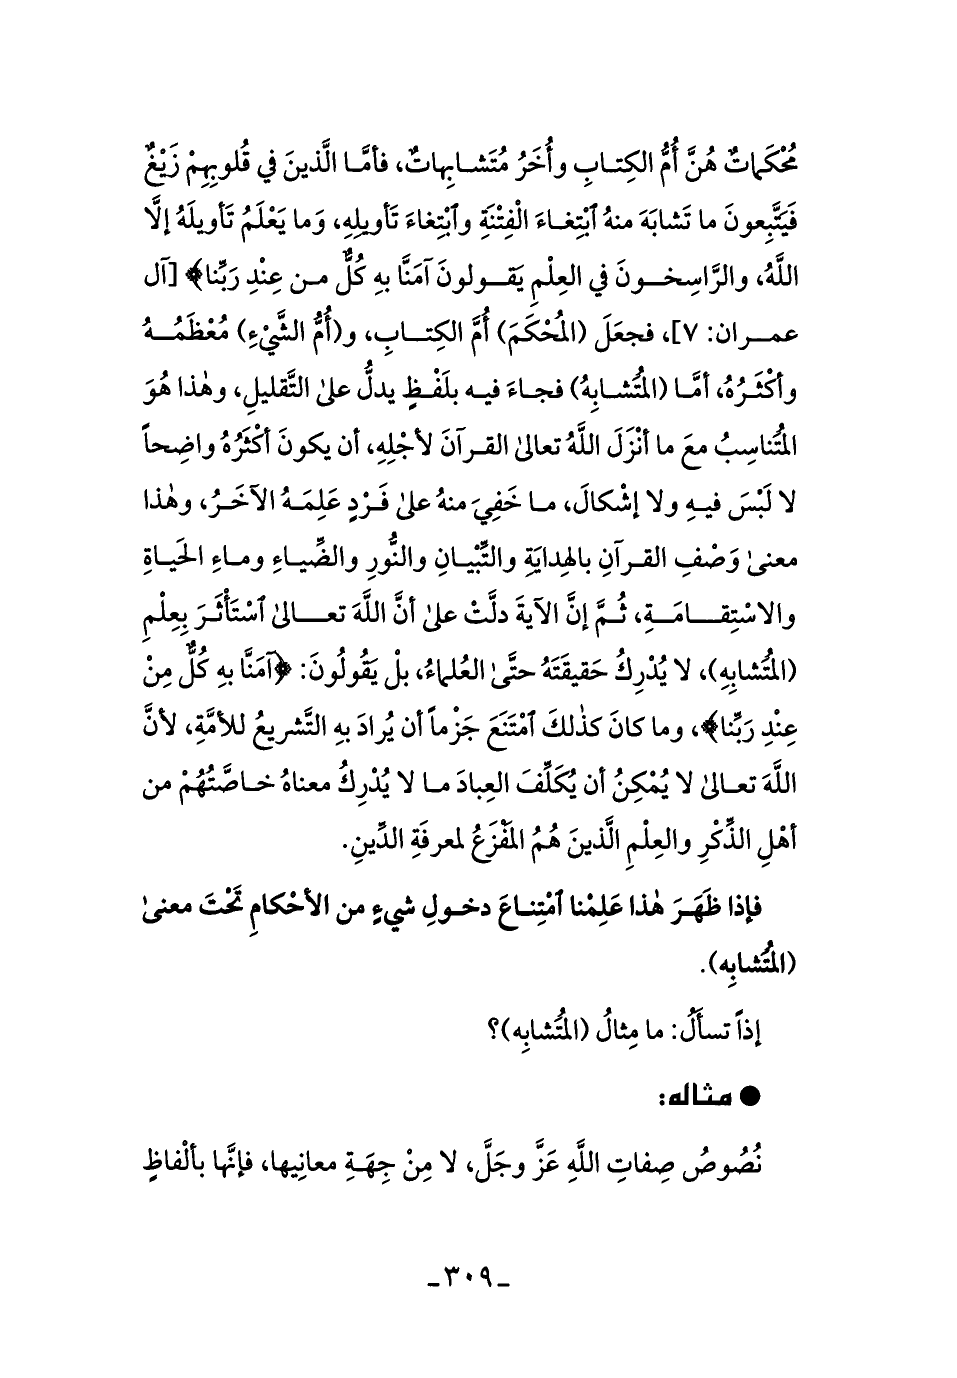 مُحْكَماتٌ هُنَّ أُمُّ الكِتـابِ وأُخَرُ مُتَشـابِهاتٌ، فأمَّـا الَّذينَ في قُلوبِهِمْ زَيْغٌ
فَيَتَّبِعونَ ما تَشابَهَ منهُ ٱبْتِغـاءَ الْفِتْنَةِ وٱبْتِغاءَ تَأويلِهِ، وَما يَعْلَمُ تَأويلَهُ إلَّا
اللَّهُ، والرَّاسِخــونَ في العِلْمِ يَقــولونَ آمَنَّا بهِ كُلٌّ مـن عِنْدِ رَبِّنا﴾ [آل
عمــران: ٧]، فجعَلَ (المُحْكَمَ) أُمَّ الكِتــابِ، و(أُمُّ الشَّيْءِ) مُعْظَمُــهُ
وأكْثَـرُهُ، أمَّـا (المُتُشـابِهُ) فجـاءَ فيـه بلَفْـظٍ يدلُّ علىٰ التَّقليلِ، وهٰذا هُوَ
المُتُناسِبُ معَ ما أنْزَلَ اللَّهُ تعالىٰ القـرآنَ لأجْلِهِ، أن يكونَ أكْثَرُهُ واضِحاً
لا لَبْسَ فيـهِ ولا إشْكالَ، مـا خَفِيَ منهُ علىٰ فَـرْدٍ عَلِمَـهُ الآخَـرُ، وهٰذا
معنىٰ وَصْفِ القـرآنِ بالهِدايَةِ والتِّبْيـانِ والنُّورِ والضِّيـاءِ ومـاءِ الحَيـاةِ
والاسْتِقــامَــةِ، ثُــمَّ إنَّ الآيةَ دلَّتْ علىٰ أنَّ اللَّهَ تعــالىٰ ٱسْتَأْثَـرَ بِعِلْمِ
(المُتُشابِهِ)، لا يُدْرِكُ حَقيقَتَهُ حتَّىٰ العُلماءُ، بلْ يَقُولُونَ: ﴿آمَنَّا بهِ كُلٌّ مِنْ
عِنْدِ رَبِّنا﴾، وما كانَ كذٰلكَ ٱمْتَنَعَ جَزْماً أن يُرادَ بهِ التَّشريعُ للأمَّةِ، لأنَّ
اللَّهَ تعـالىٰ لا يُمْكِنُ أن يُكَلِّفَ العِبادَ مـا لا يُدْرِكُ معناهُ خـاصَّتُهُمْ من
أهْلِ الذِّكْرِ والعِلْمِ الَّذينَ هُمُ المَفْزَعُ لمعرفَةِ الدِّينِ.
فإذا ظَهَـرَ هٰذا عَلِمْنا ٱمْتِنـاعَ دخـولِ شيءٍ من الأحْكامِ تَحْتَ معنىٰ
(المُتُشابِه).
إذاً تسألُ: ما مِثالُ (المُتُشابِه)؟
● مثاله:
نُصُوصُ صِفاتِ اللَّهِ عَزَّ وجَلَّ، لا مِنْ جِهَـةِ معانِيها، فإنَّها بألْفاظٍ
ـ ٣٠٩ ـ